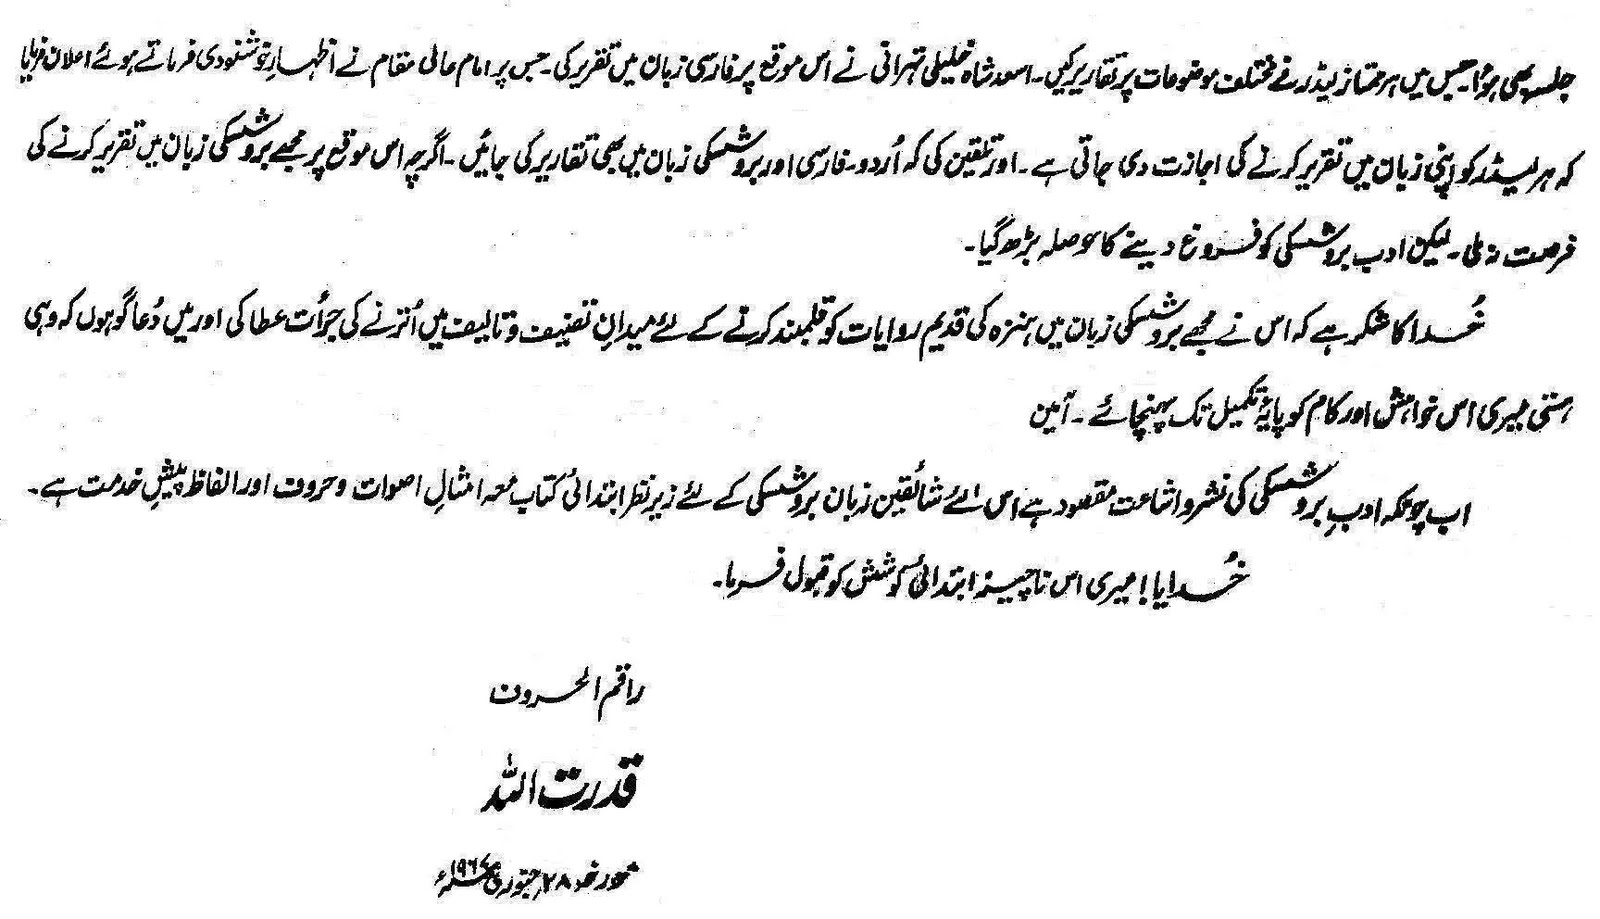 جلسہ بھی ہوا۔ جس میں ہر ممتاز لیڈر نے مختلف موضوعات پر تقاریر کیں۔ اسعد شاہ خلیلی تہرانی نے اس موقع پر فارسی زبان میں تقریر کی۔ جس پر امام عالی مقام نے اظہارِ خوشنودی فرماتے ہوئے اعلان فرمایا
کہ ہر لیڈر کو اپنی زبان میں تقریر کرنے کی اجازت دی جاتی ہے۔ اور تلقین کی کہ اُردو۔ فارسی اور بروشسکی زبان میں بھی تقاریر کی جائیں۔ اگرچہ اس موقع پر مجھے بروشسکی زبان میں تقریر کرنے کی
فرصت نہ ملی۔ لیکن ادب بروشسکی کو فروغ دینے کا حوصلہ بڑھ گیا۔
خُدا کا شکر ہے کہ اس نے مجھے بروشسکی زبان میں ہنزہ کی قدیم روایات کو قلمبند کرنے کے لئے میدانِ تصنیف و تالیف میں اُترنے کی جرأت عطا کی اور میں دُعا گو ہوں کہ وہی
ہستی میری اس خواہش اور کام کو پایۂ تکمیل تک پہنچائے۔ آمین
اب چونکہ ادبِ بروشسکی کی نشر و اشاعت مقصود ہے اس لئے شائقین زبان بروشسکی کے لئے زیر نظر ابتدائی کتاب معہ امثالِ اصوات و حروف اور الفاظ پیشِ خدمت ہے۔
خُدایا! میری اس ناچیز ابتدائی کوشش کو قبول فرما۔
راقم الحروف
قدرت اللہ
مورخہ ۲۸ جنوری ۱۹۶۴ء